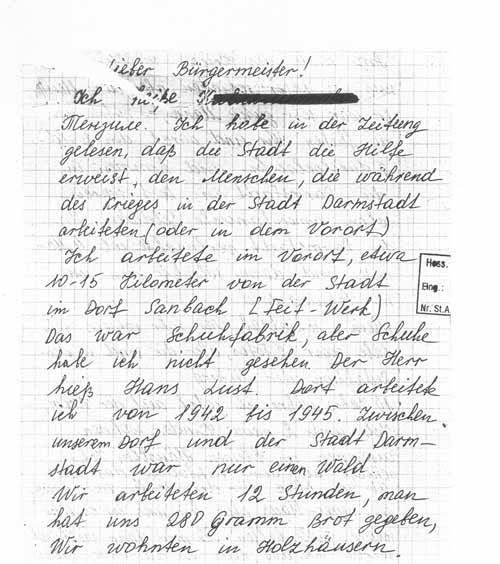 Lieber Bürgermeister!
Ich heiße
Ich habe in der Zeitung
gelesen, daß die Stadt die Hilfe
erweist, den Menschen, die während
des Krieges in der Stadt Darmstadt
arbeiteten (oder in dem Vorort)
Ich arbeitete im Vorort, etwa
10-15 Kilometer von der Stadt
im Dorf Sanbach [Feit-Werk)
Das war Schuhfabrik, aber Schuhe
habe ich nicht gesehen. Der Herr
hieß Hans Lust Dort arbeitete
ich von 1942 bis 1945. Zwischen
unserem Dorf und der Stadt Darm-
stadt war nur einen Wald.
Wir arbeiteten 12 Stunden, man
hat uns 280 Gramm Brot gegeben,
Wir wohnten in Holzhäusern.
Hess.
Eing.:
Nr. St.A